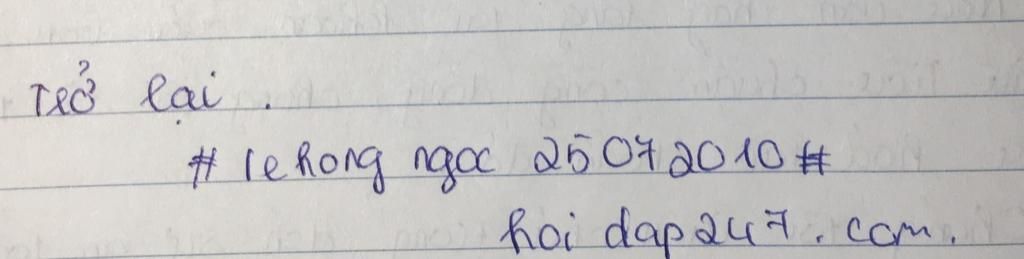 Trở lại.
# lehong ngoc 25072010 #
hoi dap 247. com.